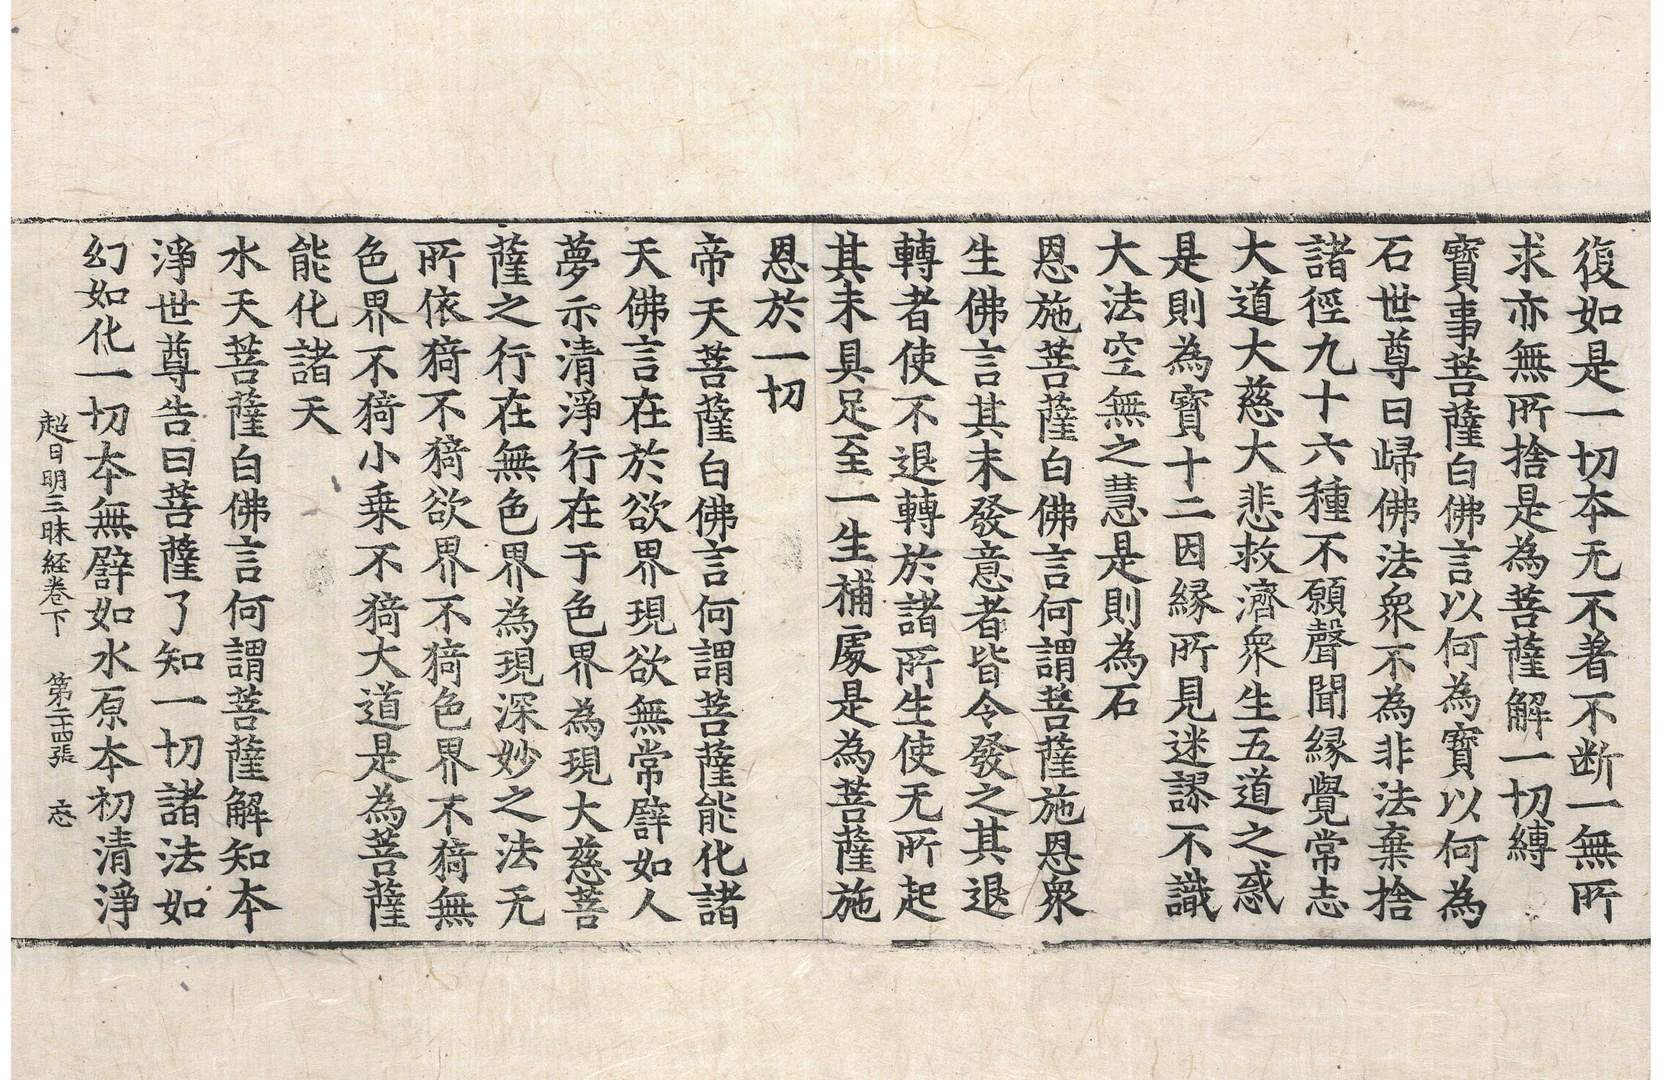 復如是一切本无不著不断一無所
求亦無所捨是為菩薩解一切縛
寳事菩薩白佛言以何為寳以何為
石世尊曰歸佛法衆不為非法棄捨
諸徑九十六種不願聲聞緣覺常志
大道大慈大悲救濟衆生五道之惑
是則為寳十二因緣所見迷謬不識
大法空無之慧是則為石
恩施菩薩白佛言何謂菩薩施恩衆
生佛言其未發意者皆令發之其退
轉者使不退轉於諸所生使无所起
其未具足至一生補處是為菩薩施
恩於一切
帝天菩薩白佛言何謂菩薩能化諸
天佛言在於欲界現欲無常譬如人
夢示清淨行在于色界為現大慈菩
薩之行在無色界為現深妙之法无
所依猗不猗欲界不猗色界不猗無
色界不猗小乗不猗大道是為菩薩
能化諸天
水天菩薩白佛言何謂菩薩解知本
淨世尊告曰菩薩了知一切諸法如
幻如化一切本無譬如水原本初清淨
超日明三昧経卷下 第二十四張 忘